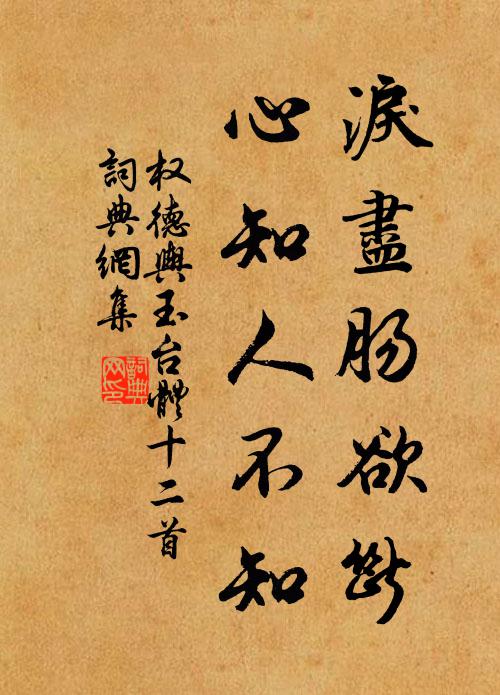 淚盡腸欲斷
心知人不知
权德輿玉台體十二首
詞典網集
詞典网印